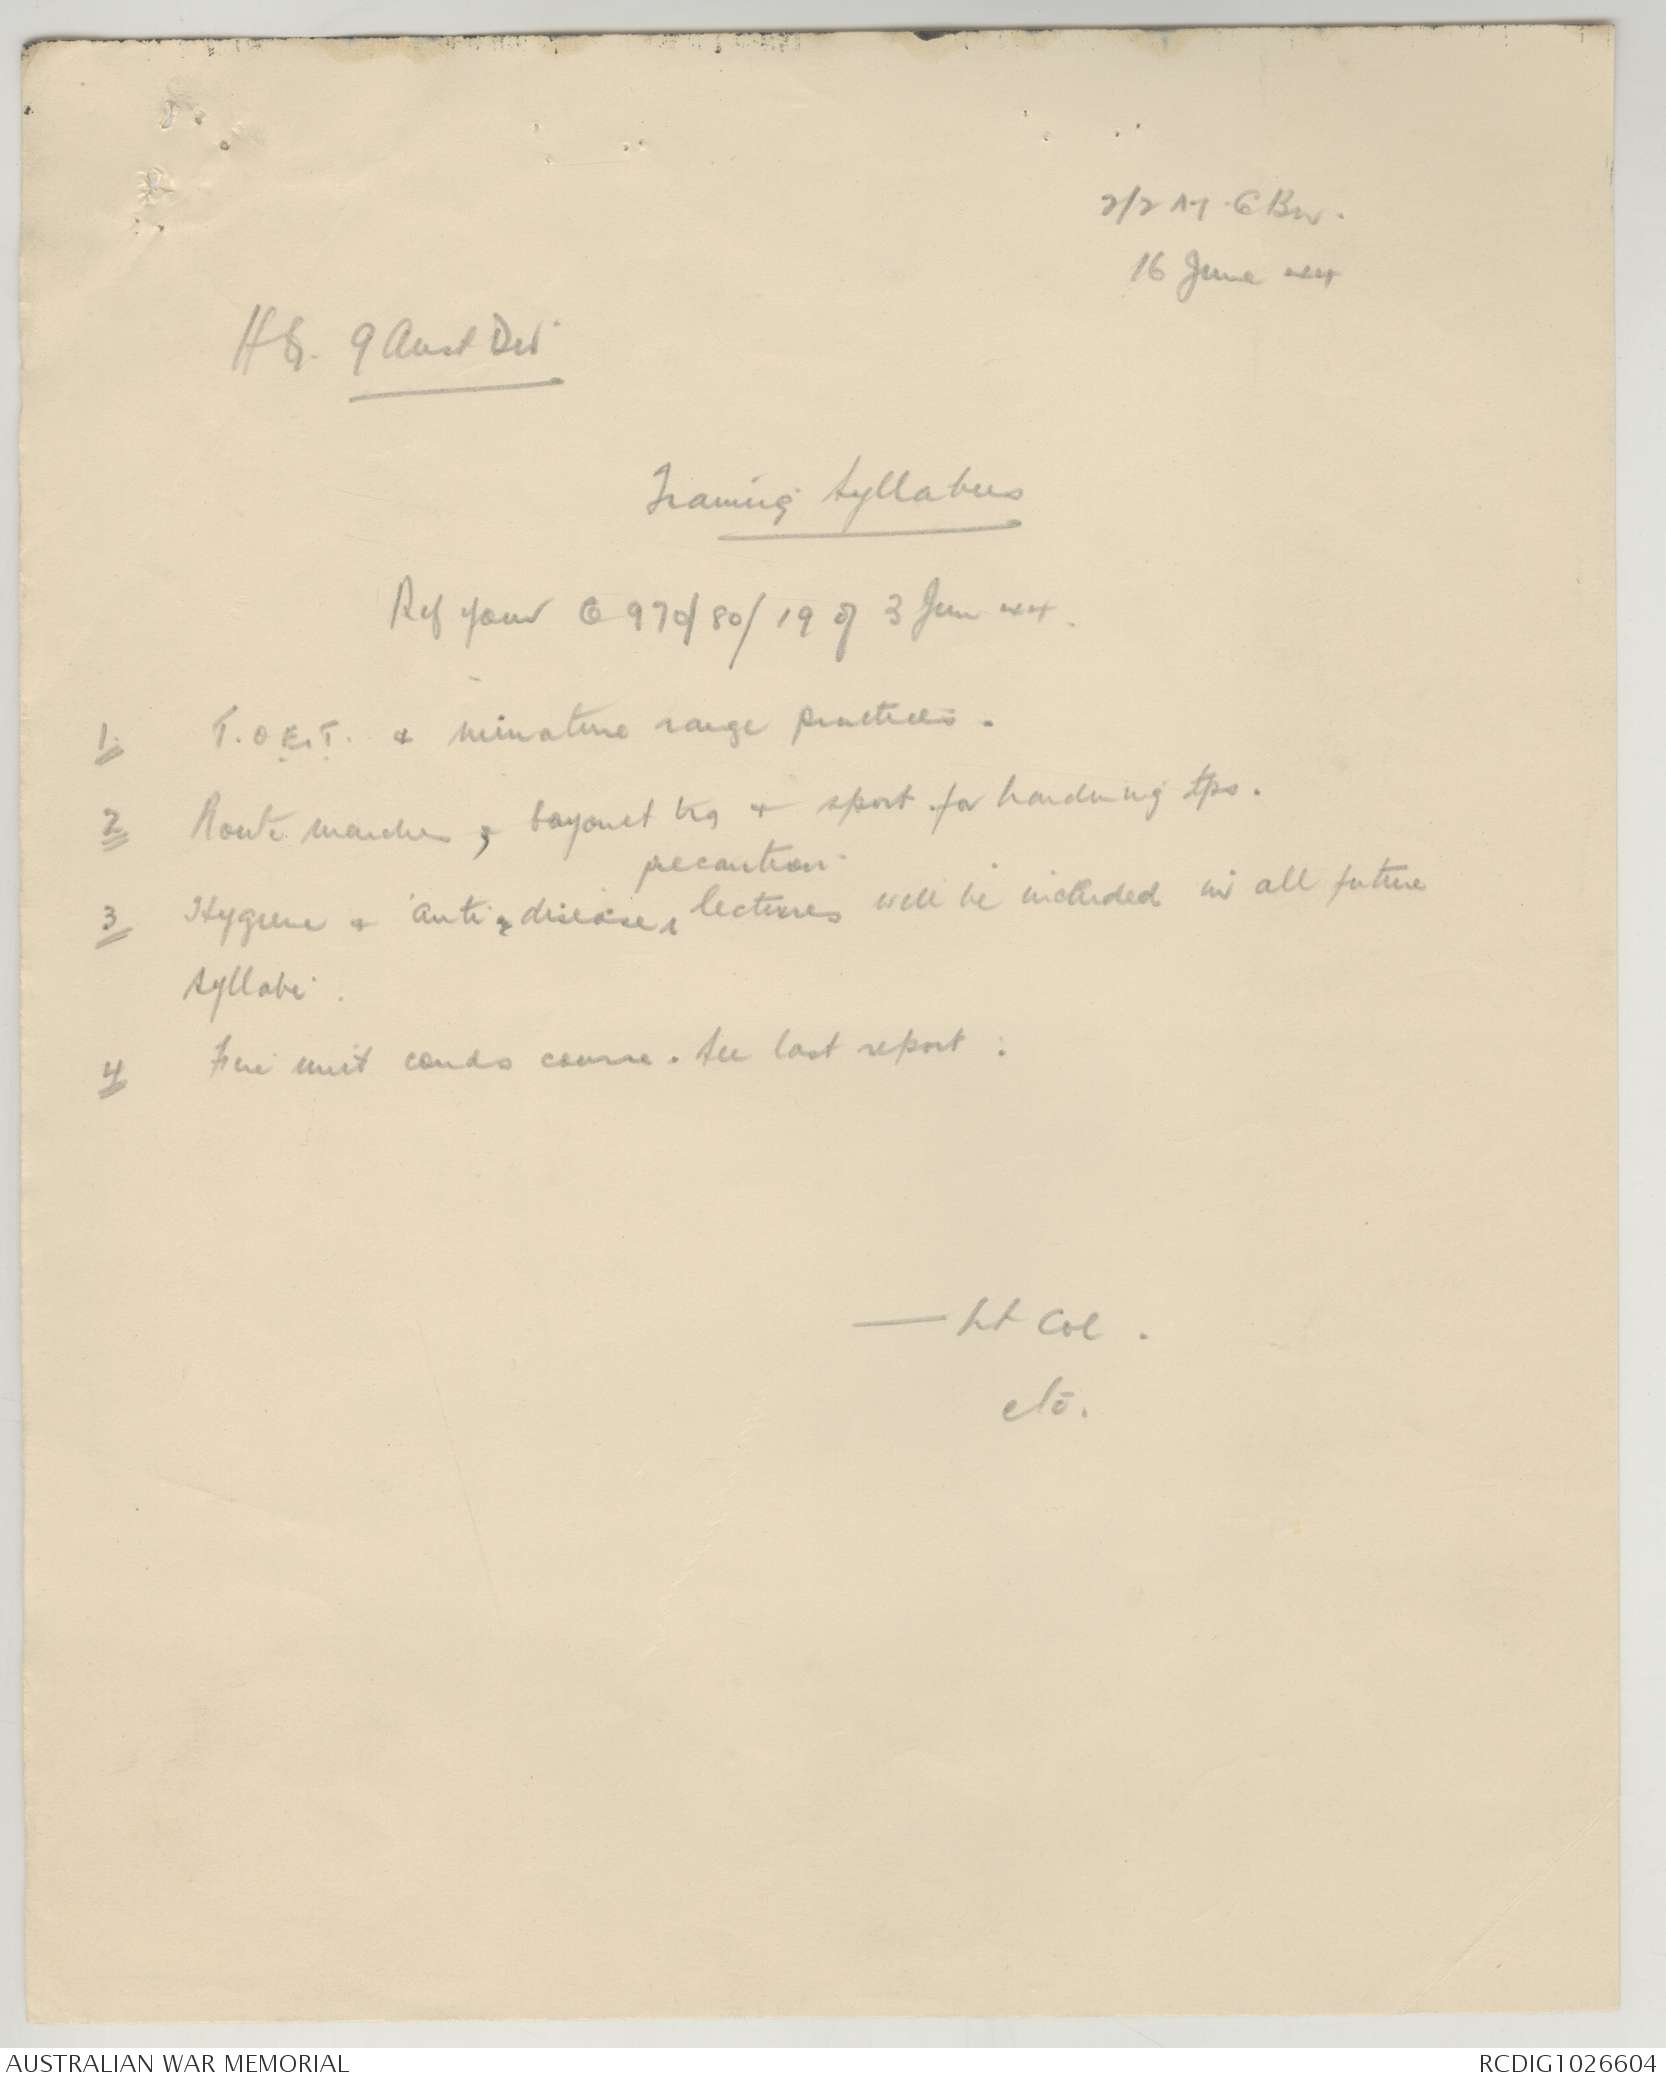 2/2 M.G Bn.
16 June 44
HQ. 9 Aust Div
Training Syllabus
Ref your G 970/80/19 of 3 Jun 44.
1. T.O.E.T. & miniature range practices.
2 Route marches, bayonet trg + sport for hardening tps.
precaution
3 Hygiene & anti-disease, lectures will be included in all future
syllabi.
4 unit comds course. See last report.
— Lt Col.
etc.
AUSTRALIAN WAR MEMORIAL
RCDIG1026604